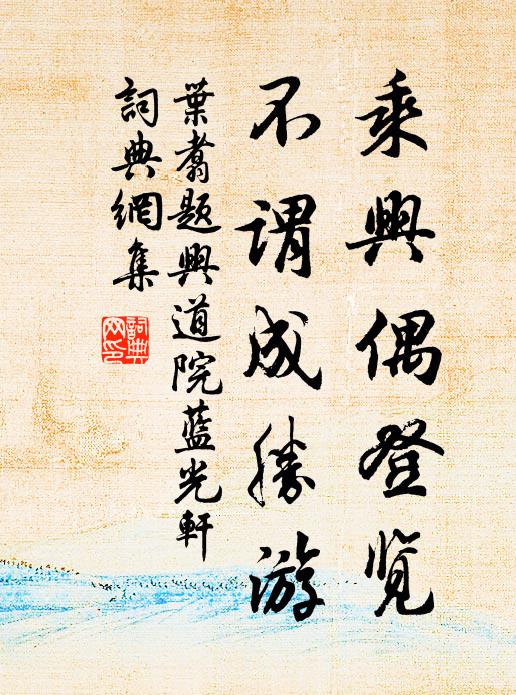 乘興偶登览
不谓成勝游
葉翥题興道院蓝光軒
詞典網集
詞典网印